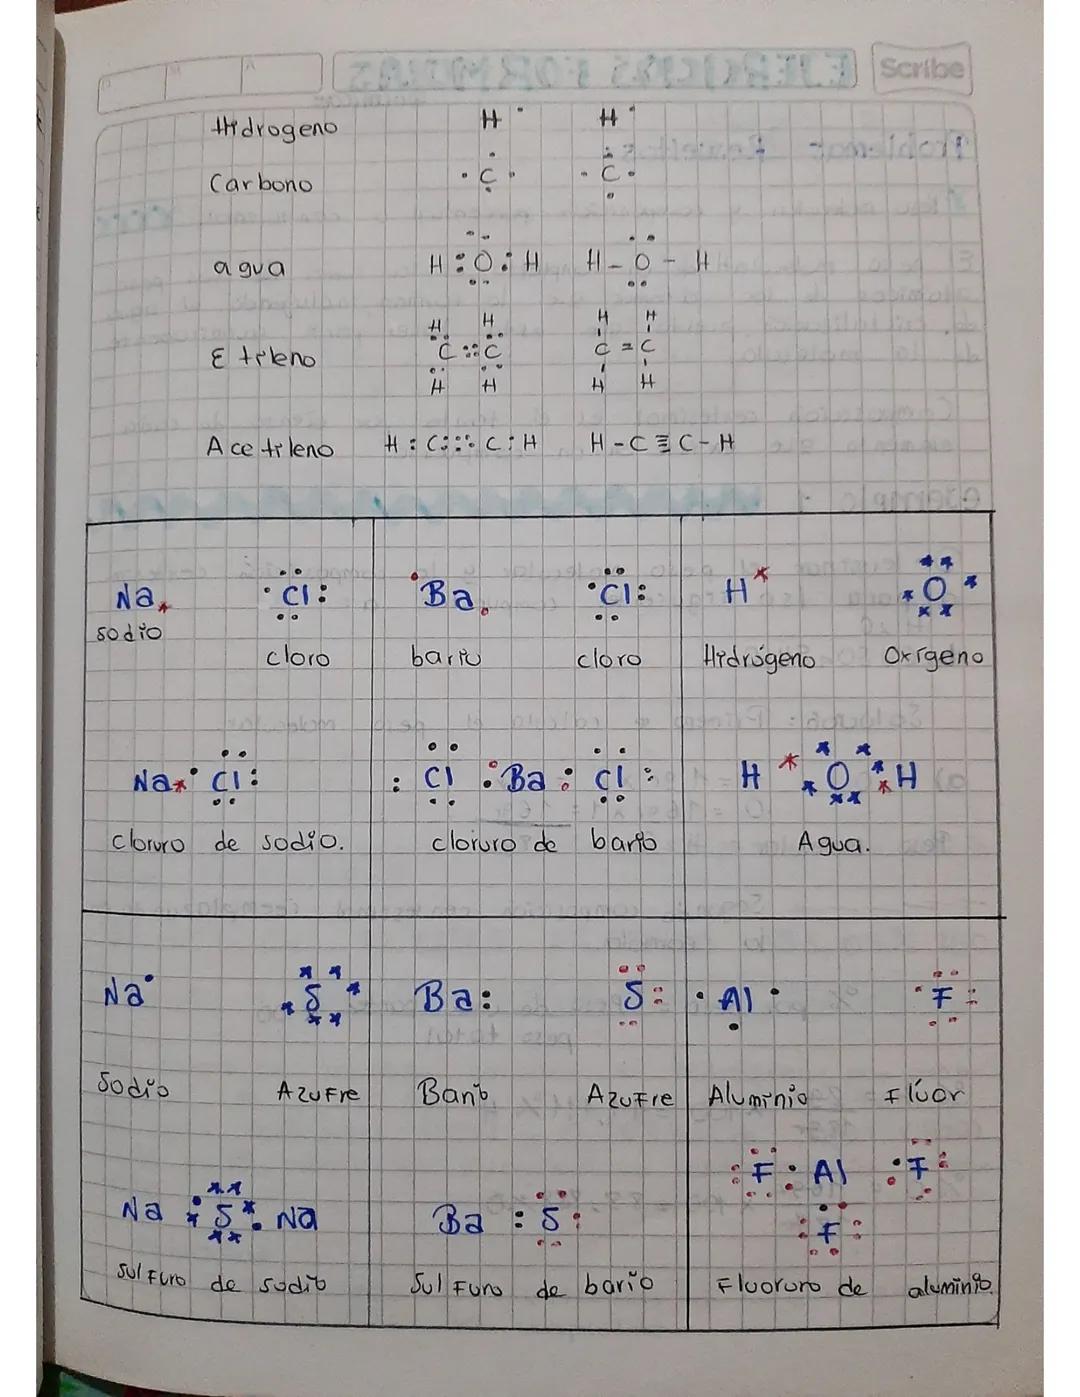 Scribe
Hidrogeno H· H·
Carbono ·C· ·C·
agua H:O:H H-O-H
Etileno
H H H H
C::C C=C
H H H H
Acetileno H:C:::C:H H-C≡C-H
Na* ·Cl: ·Ba. ·Cl: H* *O*
sodio cloro bario cloro Hidrógeno Oxígeno
Na*·Cl: :Cl:Ba:Cl: H*O*H
cloruro de sodio. cloruro de bario Agua.
Na· *S* Ba: S: ·Al· F:
Sodio Azufre Bario Azufre Aluminio Flúor
:F:Al:F:
Na:S*.Na Ba:S: :F:
Sulfuro de sodio Sulfuro de bario Fluoruro de aluminio.